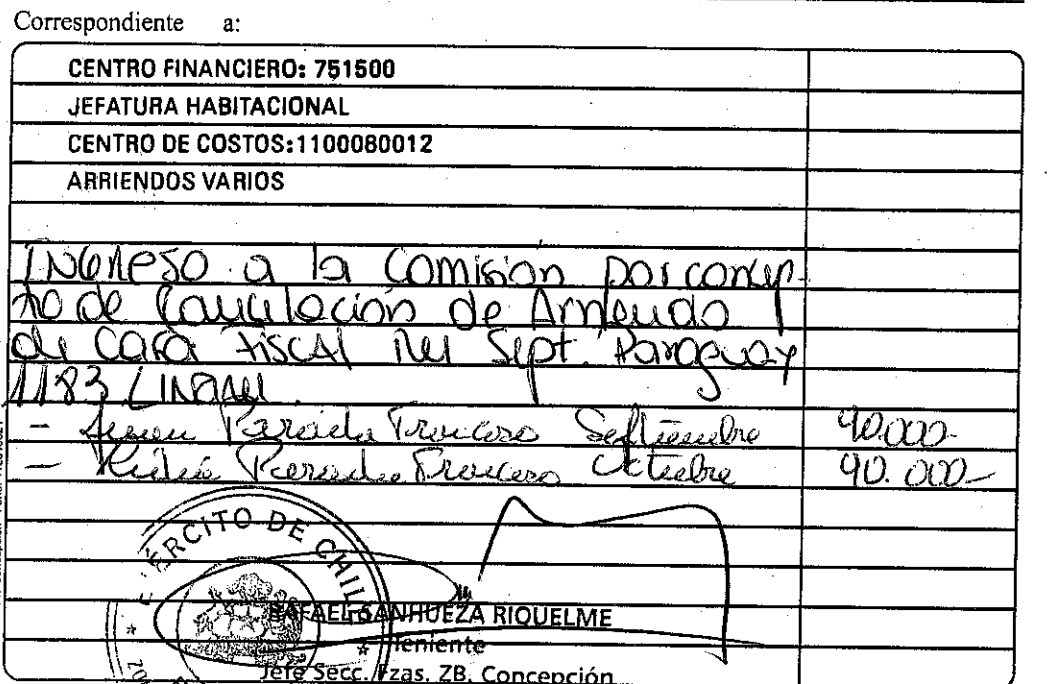 Correspondiente a:
CENTRO FINANCIERO: 751500
JEFATURA HABITACIONAL
CENTRO DE COSTOS:1100080012
ARRIENDOS VARIOS
Ingreso a la Comisión por concep-
to de Cancelación de Arriendo
de Casa Fiscal Sept. Paraguay
1183
- Parada Troncoso Septiembre 90.000-
- Parada Troncoso Octubre 90.000-
EJÉRCITO DE CHILE
RAFAEL SANHUEZA RIQUELME
Teniente
Jefe Secc. Fzas. ZB. Concepción